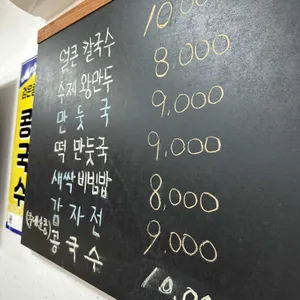 얼큰 칼국수 10,00
수제 왕만두 8,000
만 둣 국 9,000
떡 만둣국 9,000
새싹 비빔밥 8,000
감 자 전 9,000
콩 국 수 10,00
콩국수